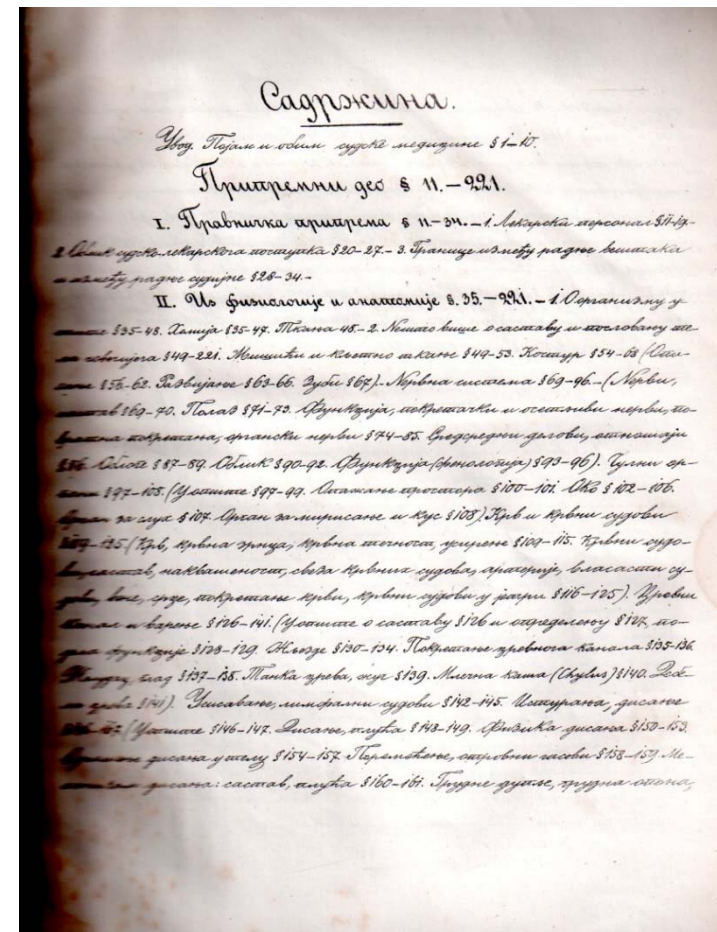 Садржина.
Увод. Појам и обим судске медицине § 1–10.
Припремни део § 11.–221.
I. Правничка припрема § 11–34. – 1. Лекарски персонал § 11–19.
2. Облик судско-лекарскога поступака § 20–27. – 3. Границе између радње вештака
и између радње судијне § 28–34. –
II. Из физиологије и анатомије §. 35.–221. – 1. О организму у
§ 35–48. Хемија § 35–47. Ткања 48. – 2. Нешто више о саставу и пословању
човечијега § 49–221. Мишићи и коштно ткање § 49–53. Костур § 54–68 (
§ 56–62. Развијање § 63–66. Зуби § 67). – Нервна система § 69–96. – (Нерви,
састав § 69–70. Полаз § 71–73. Функција, покретачки и осетљиви нерви, по-
покретања, органски нерви § 74–85. Средсредни делови, отношаји
§ 86. Облога § 87–89. Облик § 90–92. Функција (френологија) § 93–96). Чулни ор-
§ 97–108. (Уопште § 97–99. Опажање простора § 100–101. Око § 102–106.
Орган за слух § 107. Орган за мирисање и кус § 108) Крв и крвни судови
109–125 (Крв, крвна зрнца, крвна течност, усирење § 109–115. Крвни судо-
састав, наквашеност, свеза крвних судова, артерије, власасти су-
вене, срце, покретање крви, крвни судови у јетри § 116–125). Цревни
канал и варење § 126–141. (Уопште о саставу § 126 и определењу § 127, по-
функције § 128–129. Жљезде § 130–134. Покретање цревнога канала § 135–136.
Желудац глад § 137–138. Танка црева, жуч § 139. Млечна каша (Chylus) § 140. Дебе-
црева § 141). Усисавање, лимфални судови § 142–145. дисање
(Уопште § 146–147. Дисање, плућа § 148–149. Физика дисања § 150–153.
дисања у телу § 154–157. отровни гасови § 158–159. Ме-
дисања: састав, плућа § 160–161. Грудне дупље, трудна опона,